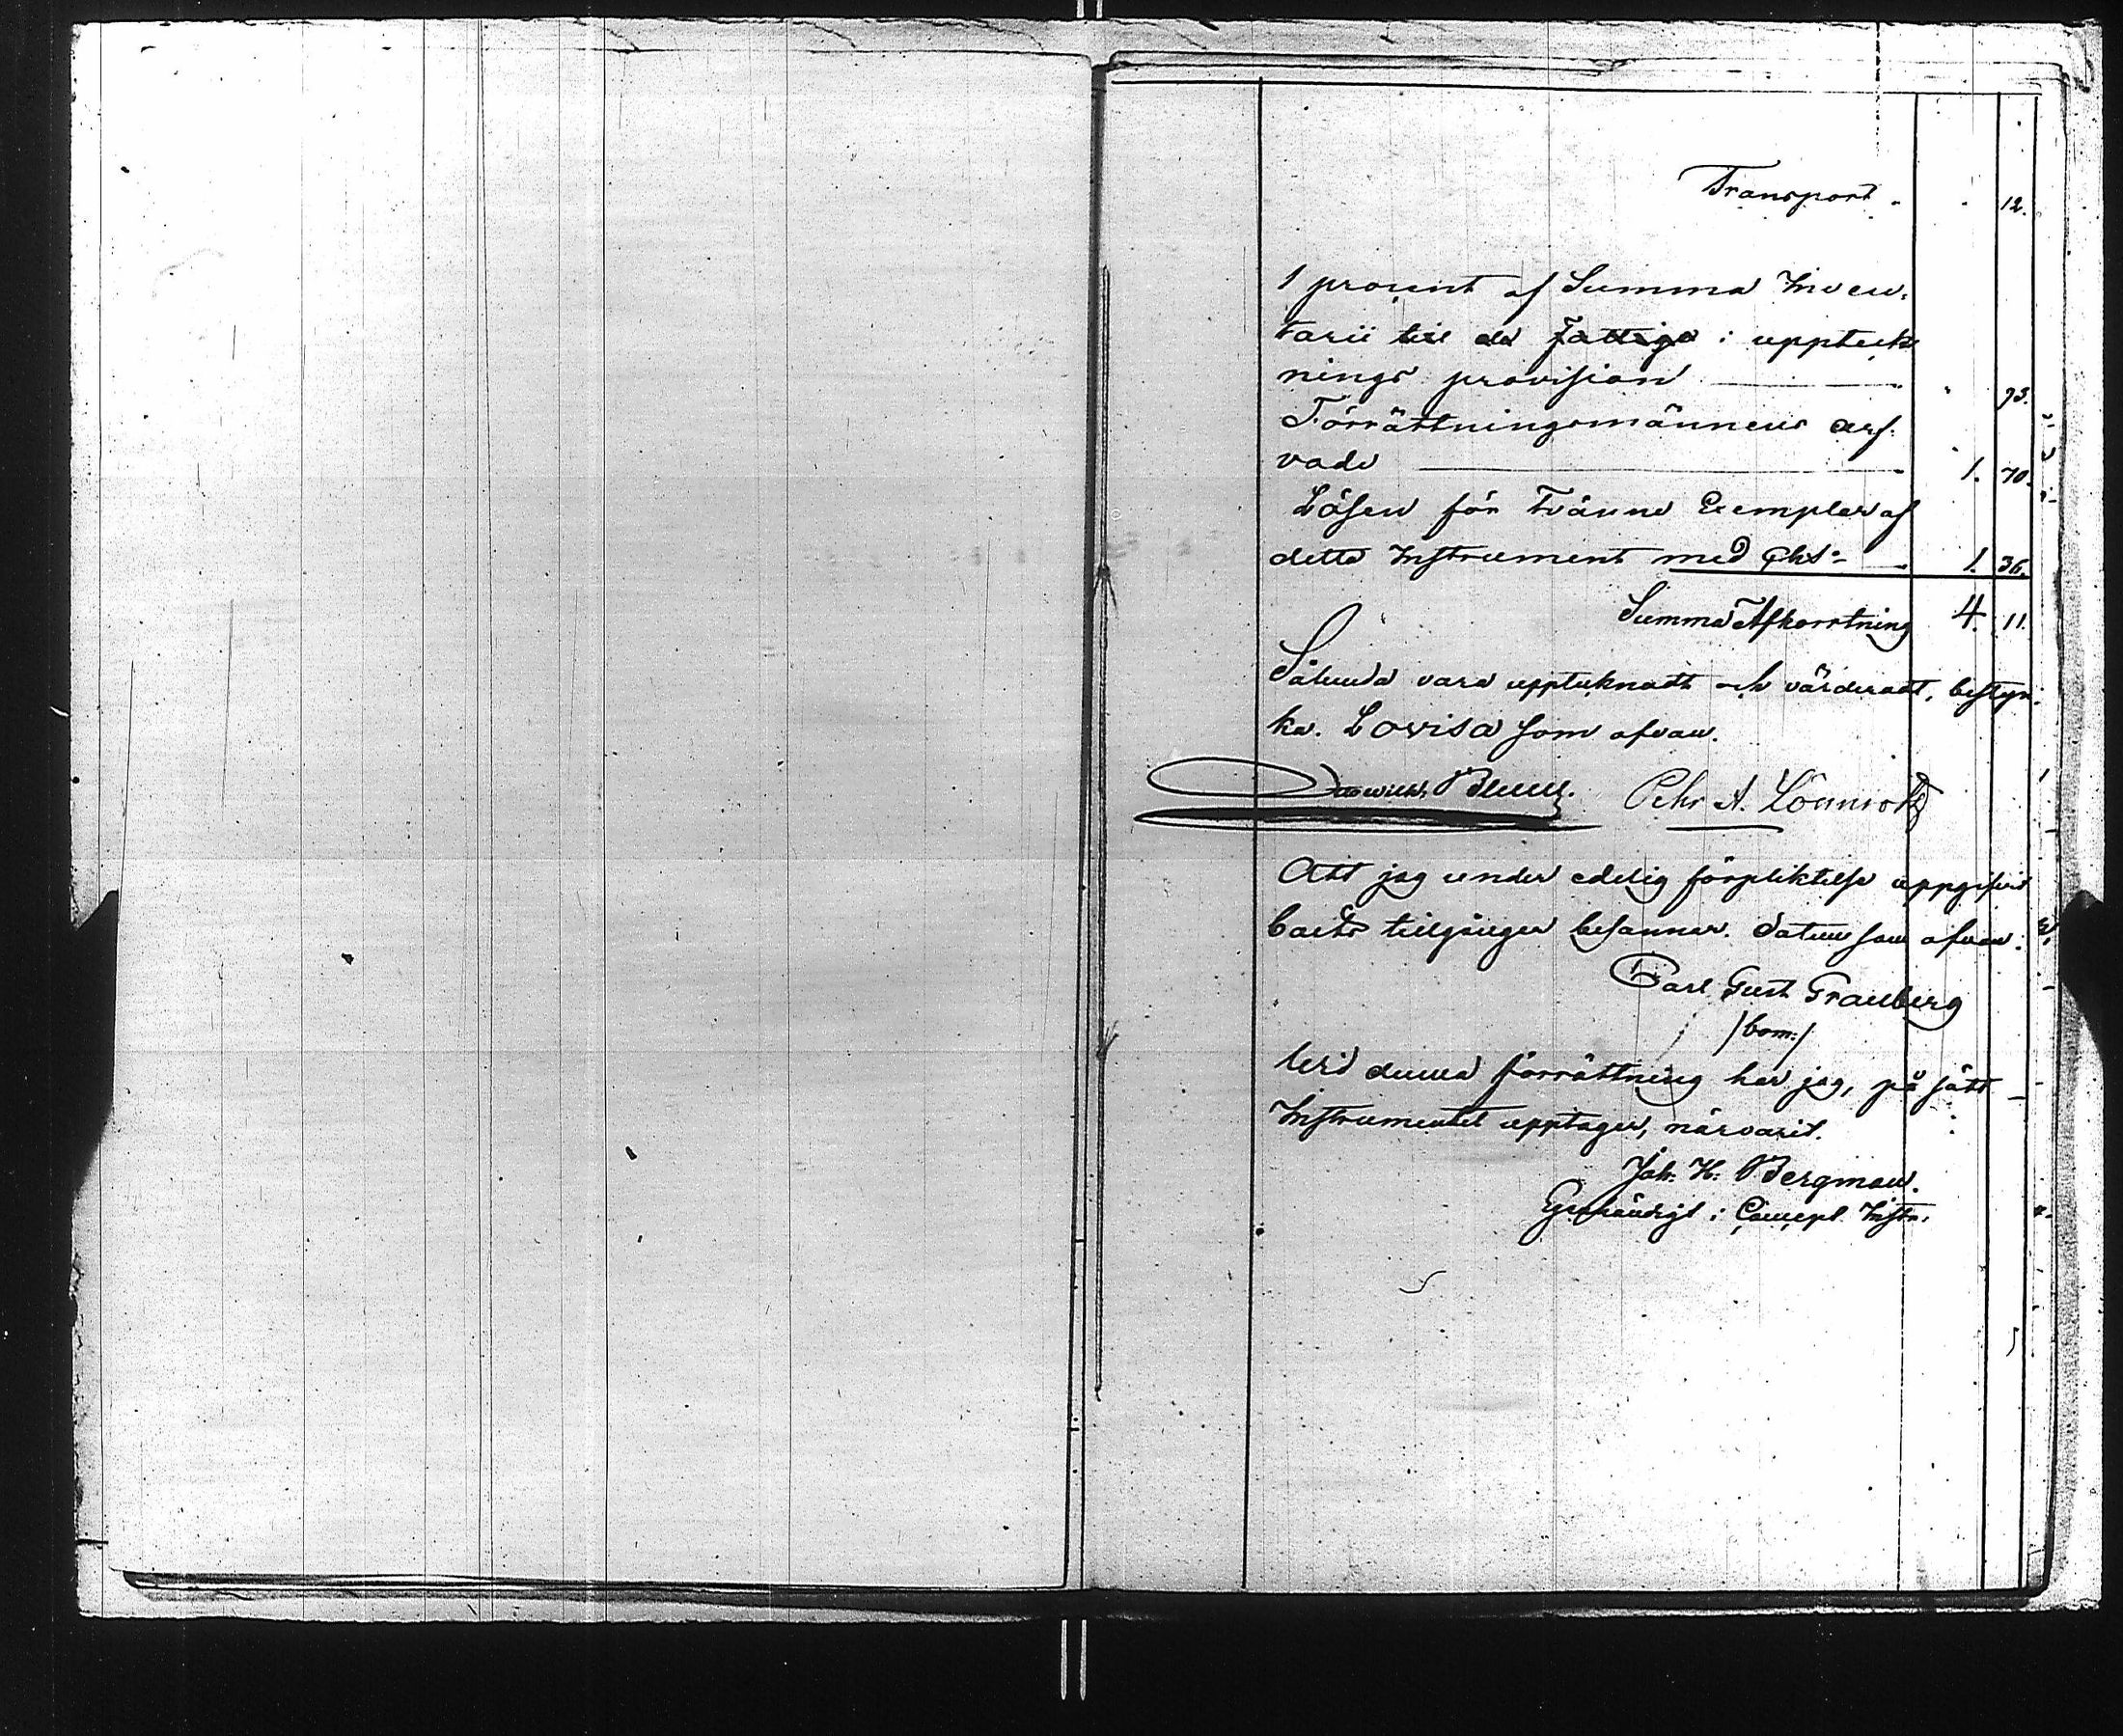 Transport . . 12.
1 procent af Summa Inven-
tarii till de fattiga i uppteck
nings provision 93.
Förrättningsmännens arf-
vode 1. 70.
Lösen för Tvänne Exemplar af
detta Instrument med Chs: 1. 36.
Summa Afkorrtning 4. 11.
Sålunda vara upptecknadt och värderadt, bestyr-
ka. Lovisa som ofvan.
Pehr A. Lönnrot
Att jag under edelig förpliktelse uppgifvit
boets tillgångar besannar. Datum som ofvan.
Carl Gust Grauberg
/bom:/
Vid denna förrättning har jag, på sätt
Instrumentet upptager, närvarit.
Joh: H: Bergman.
Egenhändigt i Concept Instr.